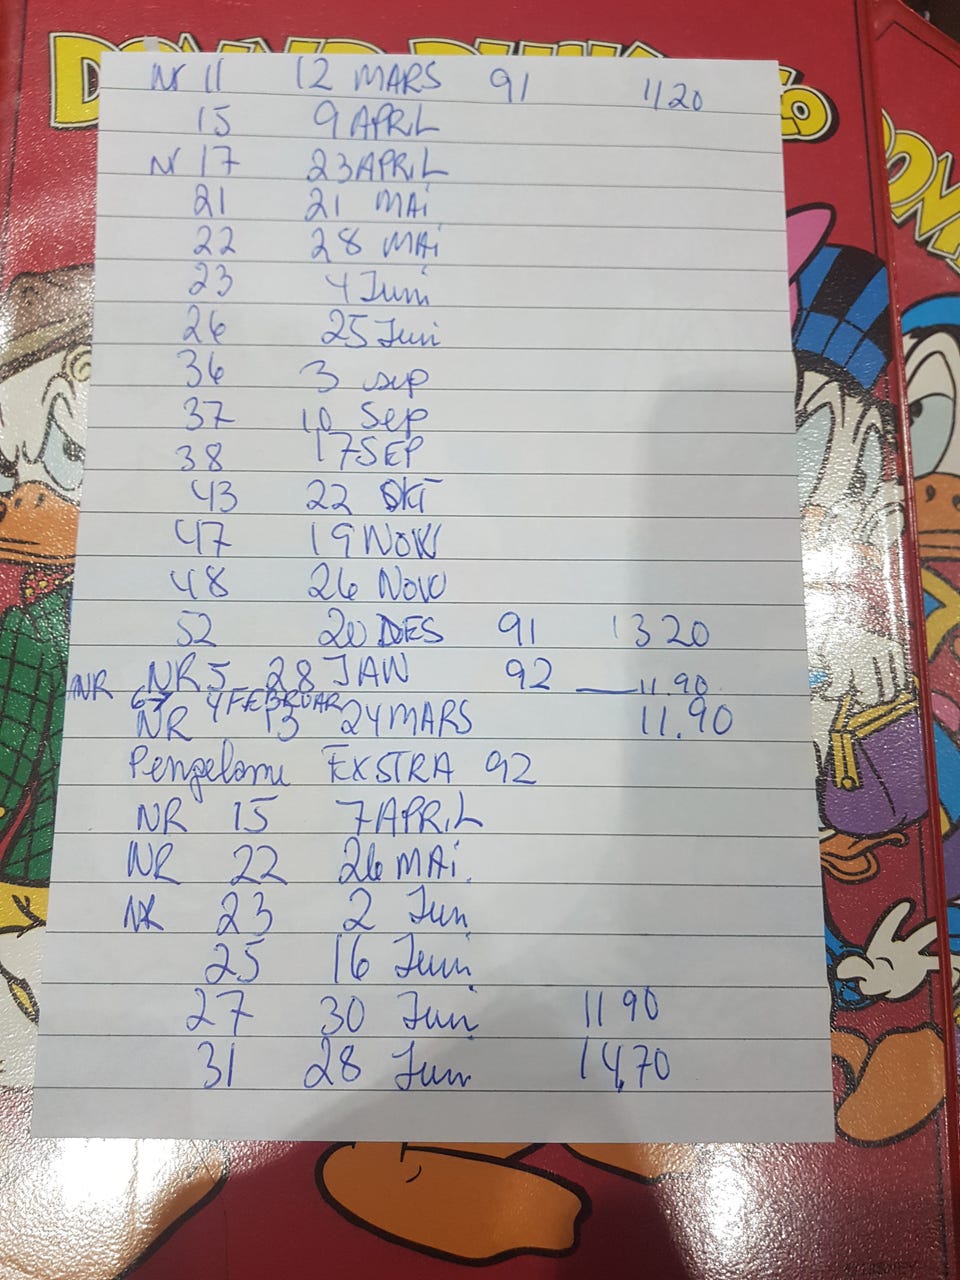 Nr 11 12 MARS 91 1120
15 9 APRIL
Nr 17 23 APRIL
21 21 MAi
22 28 MAi
23 4 Juni
26 25 Juni
36 3 sep
37 10 Sep
38 17 SEP
43 22 OKT
47 19 NOV
48 26 NOV
52 20 DES 91 1320
NR 5 28 JAN 92 11.90
NR 67 4 FEBRUAR
NR 13 24 MARS 11.90
EKSTRA 92
NR 15 7 APRiL
NR 22 26 MAi.
NR 23 2 Jun
25 16 Juni
27 30 Juni 11 90
31 28 Juni 14,70